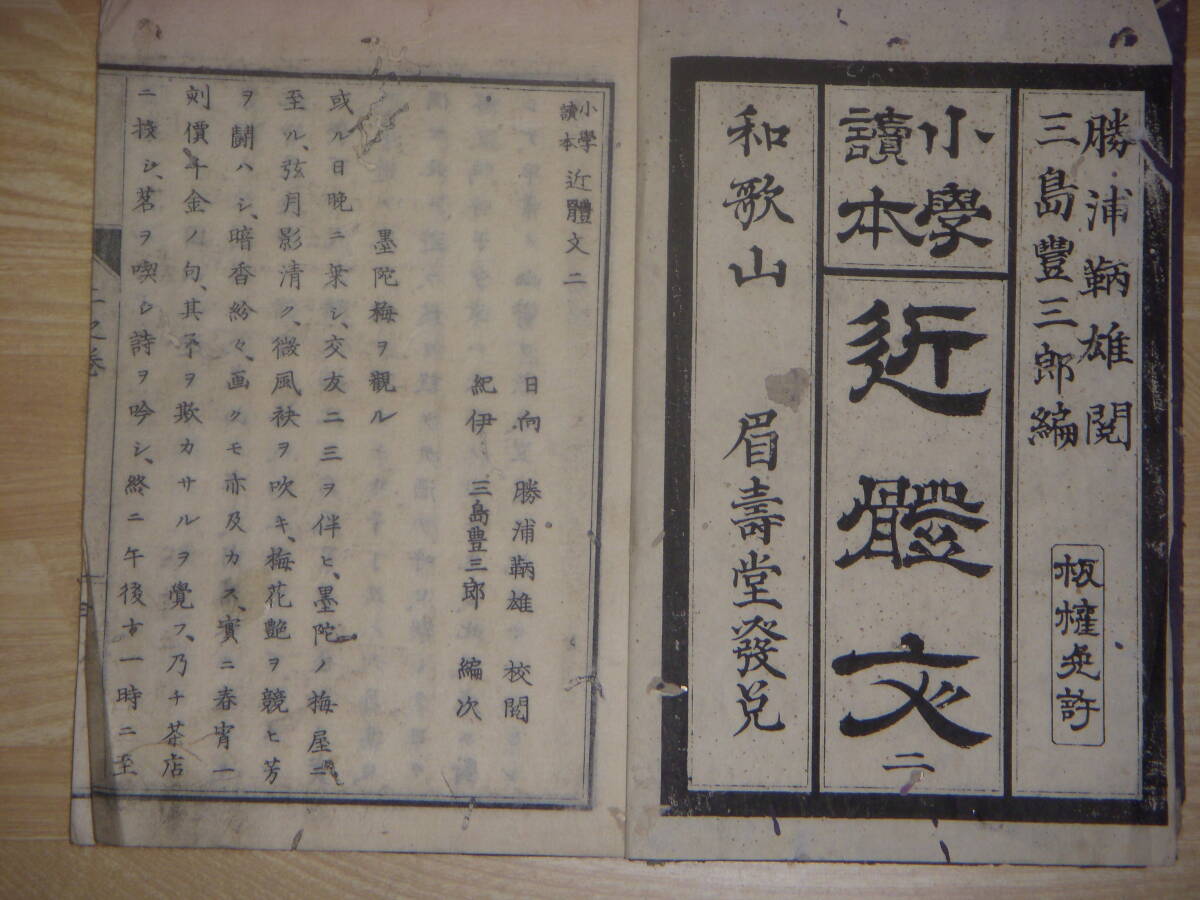 勝浦鞆雄閲
三島豐三郎編
板權免許
小學
讀本
近體文
二
和歌山 眉壽堂發兌
小學
讀本
近體文二
日向 勝浦鞆雄 校閲
紀伊 三島豊三郎 編次
墨陀梅ヲ觀ル
或ル日晩ニ乗シ、交友二三ヲ伴ヒ、墨陀ノ梅屋ニ
至ル、弦月影清ク、微風袂ヲ吹キ、梅花艶ヲ競ヒ芳
ヲ鬪ハシ、暗香紛々、画クモ亦及カス、實ニ春宵一
刻價千金ノ句、其不ヲ欺カサルヲ覺フ、乃チ茶店
ニ投シ、茗ヲ喫シ詩ヲ吟シ、終ニ午後十一時ニ至
之卷